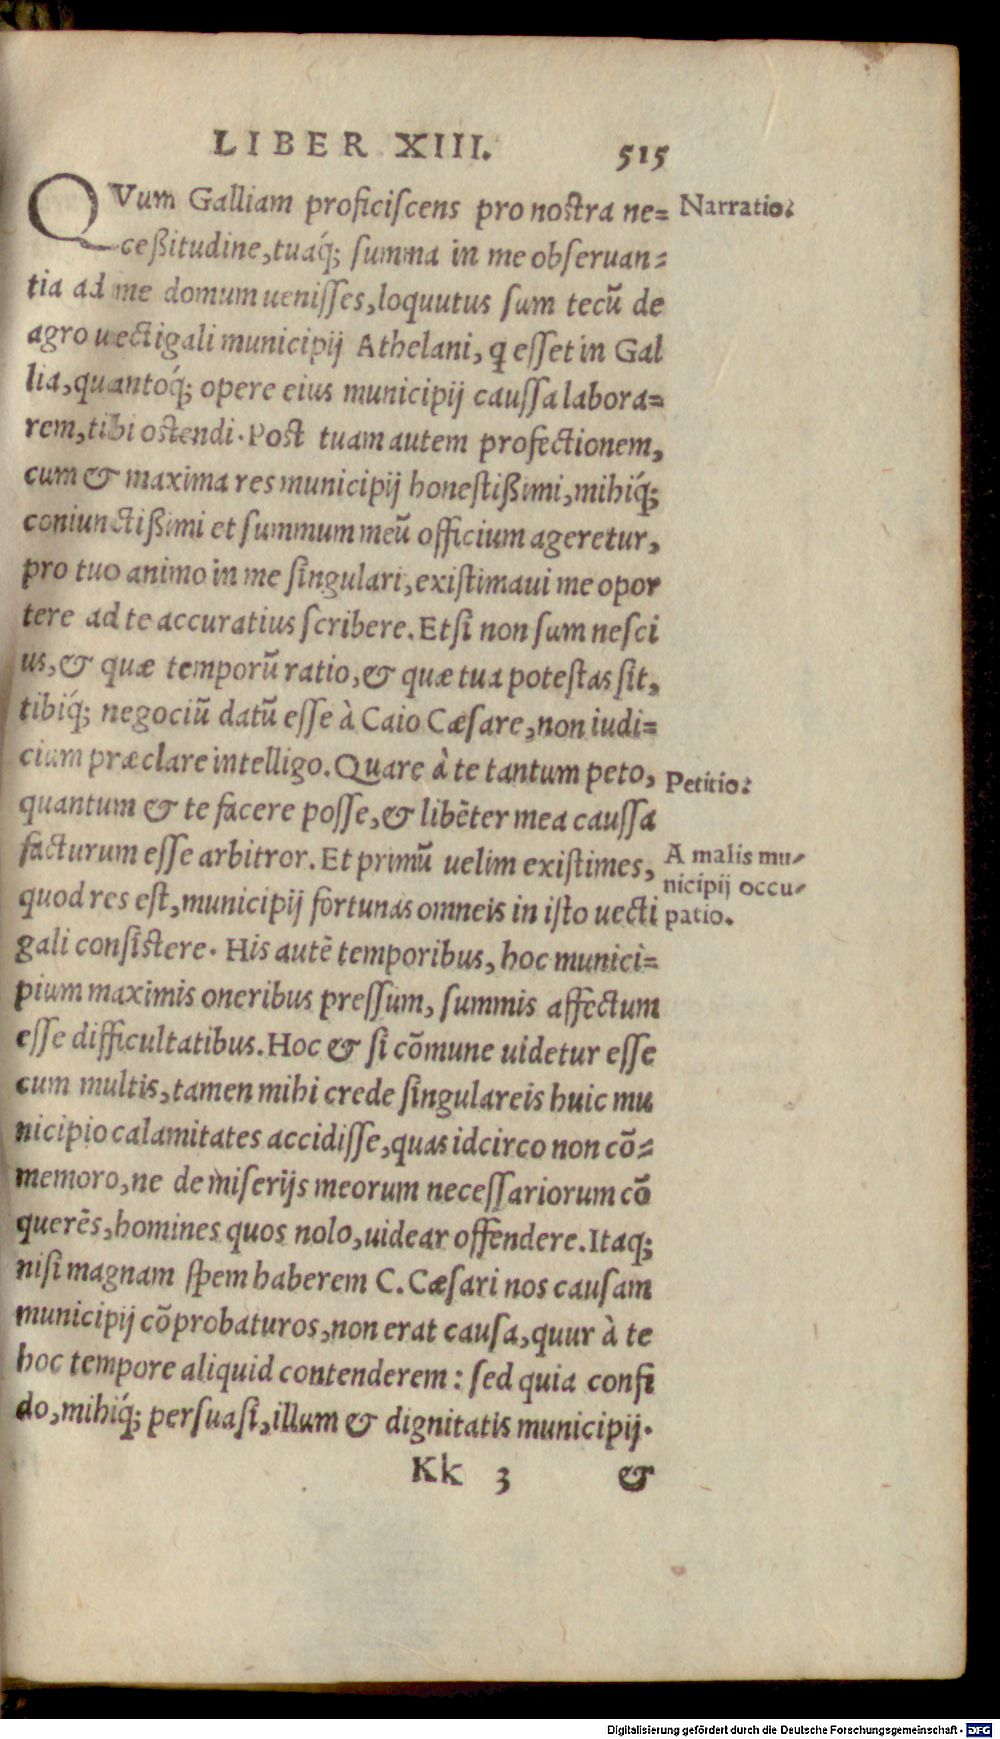 LIBER XIII. 515
QVum Galliam proficiſcens pro noſtra ne= Narratio.
ceßitudine, tuaq́; ſumma in me obſeruan=
tia ad me domum ueniſſes, loquutus ſum tecũ de
agro uectigali municipij Athelani, q eſſet in Gal
lia, quantoq́; opere eius municipij cauſſa labora=
rem, tibi oſtendi. Poſt tuam autem profectionem,
cum & maxima res municipij honeſtißimi, mihiq́;
coniunctißimi et ſummum meũ officium ageretur,
pro tuo animo in me ſingulari, exiſtimaui me opor
tere ad te accuratius ſcribere. Etſi non ſum neſci
us, & quæ temporũ ratio, & quæ tua poteſtas ſit,
tibiq́; negociũ datũ eſſe à Caio Cæſare, non iudi=
cium præclare intelligo. Quare à te tantum peto, Petitio.
quantum & te facere poſſe, & libẽter mea cauſſa
facturum eſſe arbitror. Et primũ uelim exiſtimes, A malis mu-
quod res eſt, municipij fortunas omneis in iſto uecti nicipij occu-
gali conſiſtere. His autẽ temporibus, hoc munici= patio.
pium maximis oneribus preſſum, ſummis affectum
eſſe difficultatibus. Hoc & ſi cõmune uidetur eſſe
cum multis, tamen mihi crede ſingulareis huic mu
nicipio calamitates accidiſſe, quas idcirco non cõ=
memoro, ne de miſerijs meorum neceſſariorum cõ
querẽs, homines quos nolo, uidear offendere. Itaq;
niſi magnam ſpem haberem C. Cæſari nos cauſam
municipij cõprobaturos, non erat cauſa, quur à te
hoc tempore aliquid contenderem: ſed quia confi
do, mihiq́; perſuaſi, illum & dignitatis municipij.
Kk 3 &
Digitalisierung gefördert durch die Deutsche Forschungsgemeinschaft - DFG